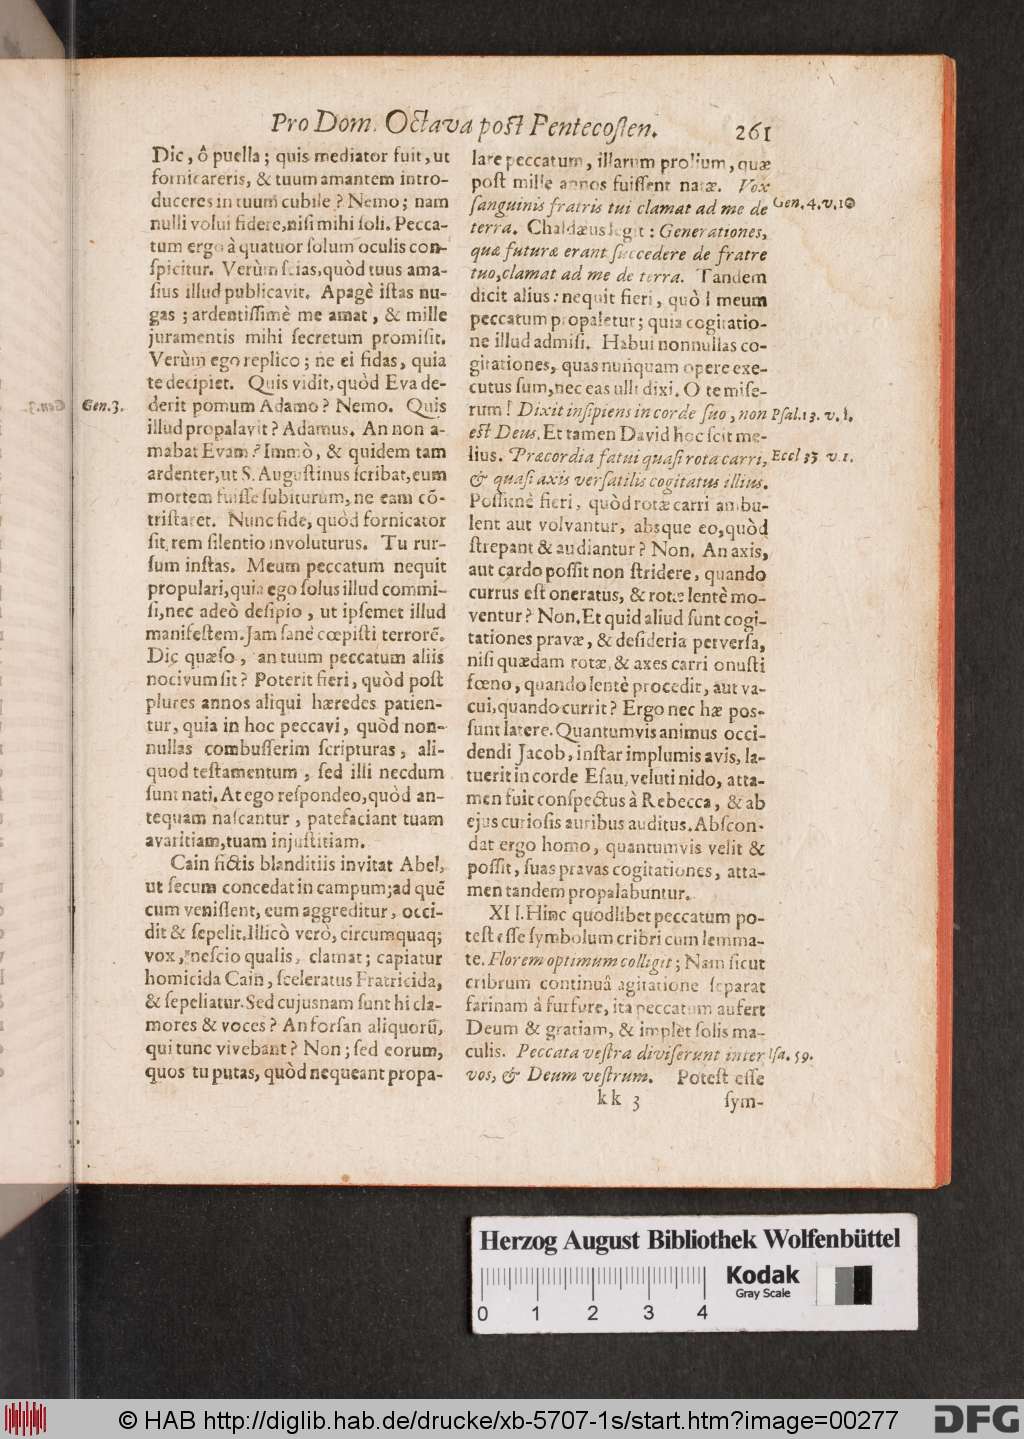 Pro Dom. Octava poſt Pentecoſten. 261
Dic, ô puella; quis mediator fuit, ut
fornicareris, & tuum amantem intro-
duceres in tuum cubile? Nemo; nam
nulli volui fidere, niſi mihi ſoli. Pecca-
tum ergo à quatuor ſolum oculis con-
ſpicitur. Verùm ſcias, quòd tuus ama-
ſius illud publicavit. Apagè iſtas nu-
gas; ardentiſſimè me amat, & mille
juramentis mihi ſecretum promiſit.
Verùm ego replico; ne ei fidas, quia
te decipiet. Quis vidit, quòd Eva de-
Gen.3. derit pomum Adamo? Nemo. Quis
illud propalavit? Adamus. An non a-
mabat Evam? Immò, & quidem tam
ardenter, ut S. Auguſtinus ſcribat, eum
mortem fuiſſe ſubiturum, ne eam cõ-
triſtaret. Nunc fide, quòd fornicator
ſit rem ſilentio involuturus. Tu rur-
ſum inſtas. Meum peccatum nequit
propulari, quia ego ſolus illud commi-
ſi, nec adeò deſipio, ut ipſemet illud
manifeſtem. Jam ſanè cœpiſti terrorẽ.
Dic quæſo, an tuum peccatum aliis
nocivum ſit? Poterit fieri, quòd poſt
plures annos aliqui hæredes patien-
tur, quia in hoc peccavi, quòd non-
nullas combuſſerim ſcripturas, ali-
quod teſtamentum, ſed illi necdum
ſunt nati. At ego reſpondeo, quòd an-
tequam naſcantur, patefaciant tuam
avaritiam, tuam injuſtitiam.
Cain fictis blanditiis invitat Abel,
ut ſecum concedat in campum; ad quẽ
cum veniſſent, eum aggreditur, occi-
dit & ſepelit. Illicò verò, circumquaq;
vox, neſcio qualis, clamat; capiatur
homicida Cain, ſceleratus Fratricida,
& ſepeliatur. Sed cujusnam ſunt hi cla-
mores & voces? An forſan aliquorũ,
qui tunc vivebant? Non; ſed eorum,
quos tu putas, quòd nequeant propa-
lare peccatum, illarum prolium, quæ
poſt mille annos fuiſſent natæ. Vox
ſanguinis fratris tui clamat ad me de Gen.4.v.10
terra. Chaldæus legit: Generationes,
quæ futuræ erant ſuccedere de fratre
tuo, clamat ad me de terra. Tandem
dicit alius: nequit fieri, quòd meum
peccatum propaletur; quia cogitatio-
ne illud admiſi. Habui nonnullas co-
gitationes, quas nunquam opere exe-
cutus ſum, nec eas ulli dixi. O te miſe-
rum! Dixit inſipiens in corde ſuo, non Pſal.13. v. 1.
eſt Deus. Et tamen David hoc ſcit me-
lius. Præcordia fatui quaſi rota carri, Eccl 33 v.1.
& quaſi axis verſatilis cogitatus illius.
Poſſitnè fieri, quòd rotæ carri ambu-
lent aut volvantur, absque eo, quòd
ſtrepant & audiantur? Non. An axis,
aut cardo poſſit non ſtridere, quando
currus eſt oneratus, & rotæ lentè mo-
ventur? Non. Et quid aliud ſunt cogi-
tationes pravæ, & deſideria perverſa,
niſi quædam rotæ, & axes carri onuſti
fœno, quando lentè procedit, aut va-
cui, quando currit? Ergo nec hæ pos-
ſunt latere. Quantumvis animus occi-
dendi Jacob, inſtar implumis avis, la-
tuerit in corde Eſau, veluti nido, atta-
men fuit conſpectus à Rebecca, & ab
ejus curioſis auribus auditus. Abſcon-
dat ergo homo, quantumvis velit &
poſſit, ſuas pravas cogitationes, atta-
men tandem propalabuntur.
XII. Hinc quodlibet peccatum po-
teſt eſſe ſymbolum cribri cum lemma-
te. Florem optimum colligit; Nam ſicut
cribrum continuâ agitatione ſeparat
farinam â furfure, ita peccatum aufert
Deum & gratiam, & implet ſolis ma-
culis. Peccata veſtra diviſerunt inter Iſa. 59.
vos, & Deum veſtrum. Poteſt eſſe
kk 3 ſym-
Herzog August Bibliothek Wolfenbüttel
Kodak
Gray Scale
0 1 2 3 4
© HAB http://diglib.hab.de/drucke/xb-5707-1s/start.htm?image=00277
DFG